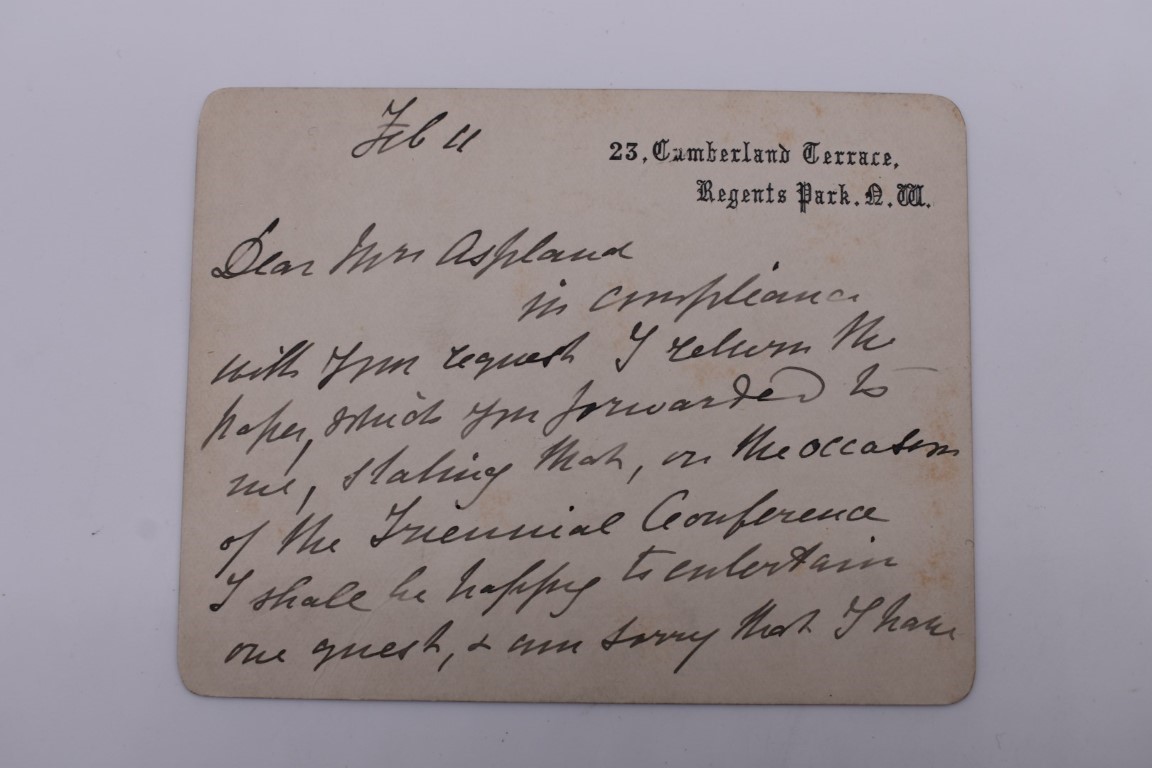 Feb 11
23, Cumberland Terrace,
Regents Park. N. W.
Dear Mrs Aspland
in compliance
with your request I return the
paper, which you forwarded to
me, stating that, on the occasion
of the Triennial Conference
I shall be happy to entertain
one guest, & am sorry that I have